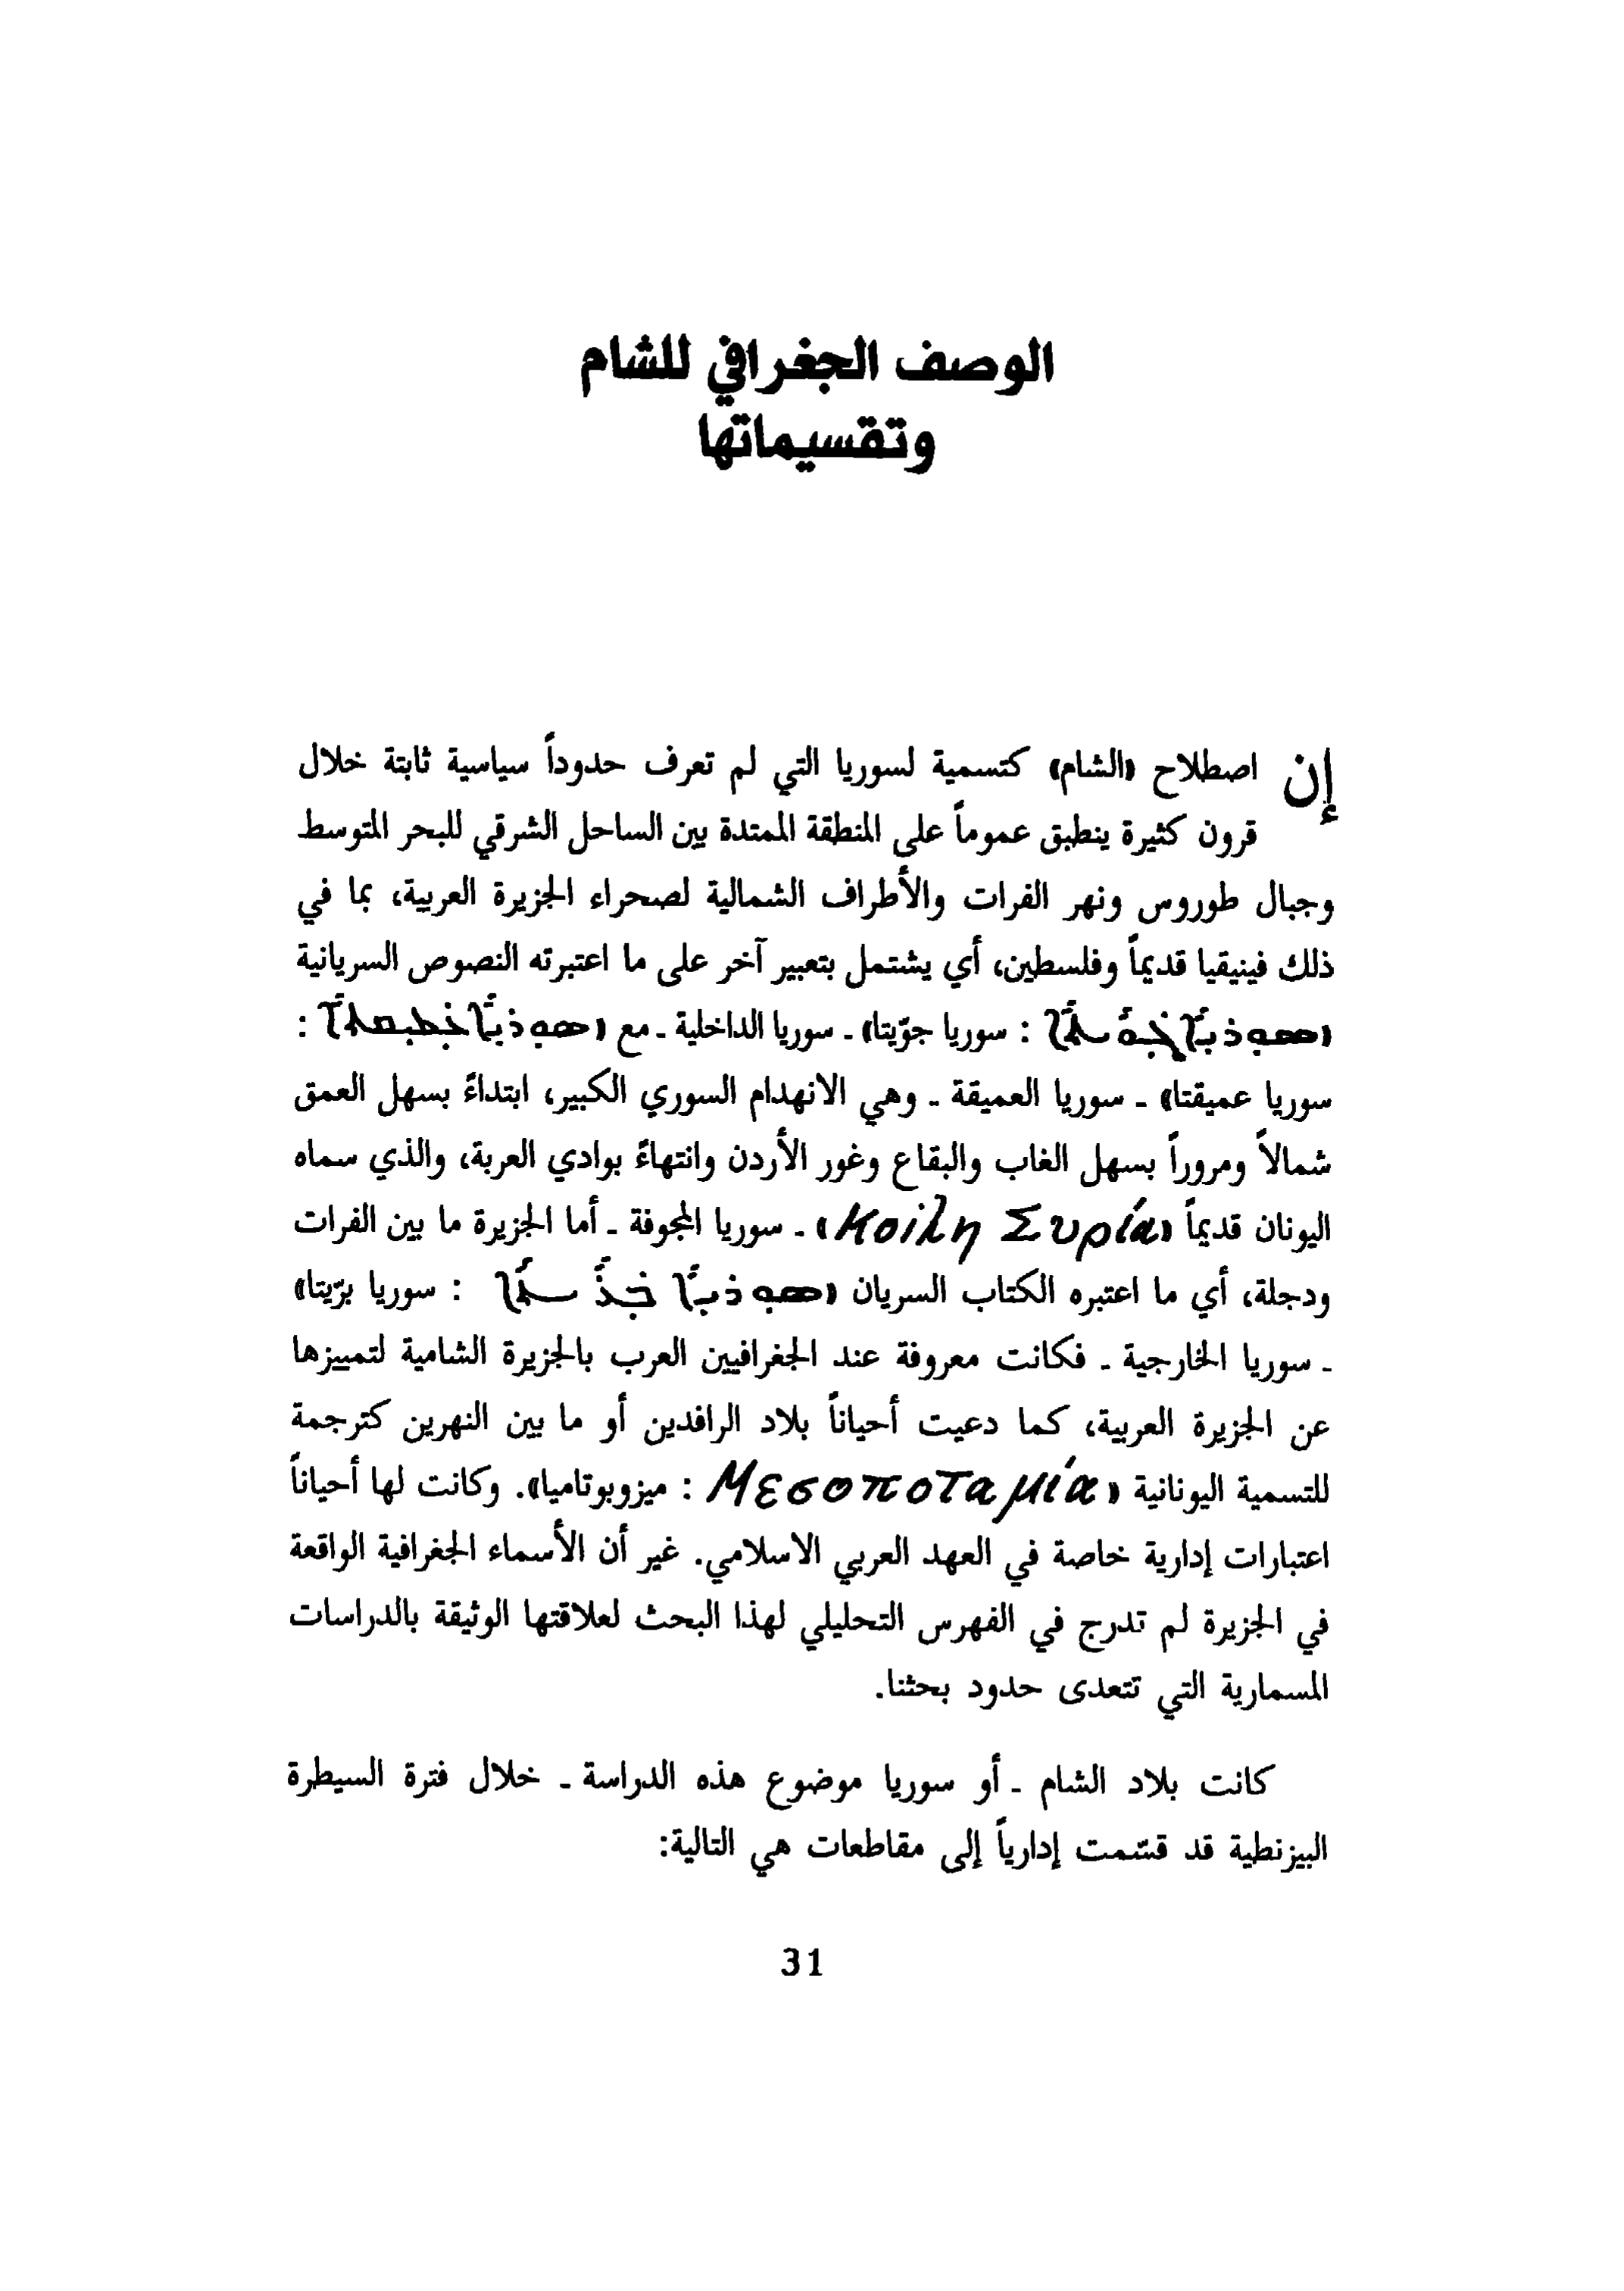 الوصف الجغرافي للشام
وتقسيماتها
إن اصطلاح «الشام» كتسمية لسوريا التي لم تعرف حدوداً سياسية ثابتة خلال
قرون كثيرة ينطبق عموماً على المنطقة الممتدة بين الساحل الشرقي للبحر المتوسط
وجبال طوروس ونهر الفرات والأطراف الشمالية لصحراء الجزيرة العربية، بما في
ذلك فينيقيا قديماً وفلسطين، أي يشتمل بتعبير آخر على ما اعتبرته النصوص السريانية
: سوريا جوّيتا» ـ سوريا الداخلية ـ مع :
سوريا عميقتا» ـ سوريا العميقة ـ وهي الانهدام السوري الكبير، ابتداءً بسهل العمق
شمالاً ومروراً بسهل الغاب والبقاع وغور الأردن وانتهاءً بوادي العربة، والذي سماه
اليونان قديماً «Κοίλη Συρία» ـ سوريا المجوفة ـ أما الجزيرة ما بين الفرات
ودجلة، أي ما اعتبره الكتاب السريان : سوريا برّيتا»
ـ سوريا الخارجية ـ فكانت معروفة عند الجغرافيين العرب بالجزيرة الشامية لتمييزها
عن الجزيرة العربية، كما دعيت أحياناً بلاد الرافدين أو ما بين النهرين كترجمة
للتسمية اليونانية «Μεσοποταμία : ميزوبوتاميا». وكانت لها أحياناً
اعتبارات إدارية خاصة في العهد العربي الاسلامي. غير أن الأسماء الجغرافية الواقعة
في الجزيرة لم تدرج في الفهرس التحليلي لهذا البحث لعلاقتها الوثيقة بالدراسات
المسمارية التي تتعدى حدود بحثنا.
كانت بلاد الشام ـ أو سوريا موضوع هذه الدراسة ـ خلال فترة السيطرة
البيزنطية قد قسّمت إدارياً إلى مقاطعات هي التالية:
31